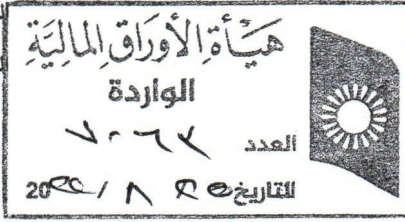 هَيْأَةُ الأَوْرَاقِ المَالِيَّةِ
الواردة
العدد
التاريخ ٨ / 20٢٢